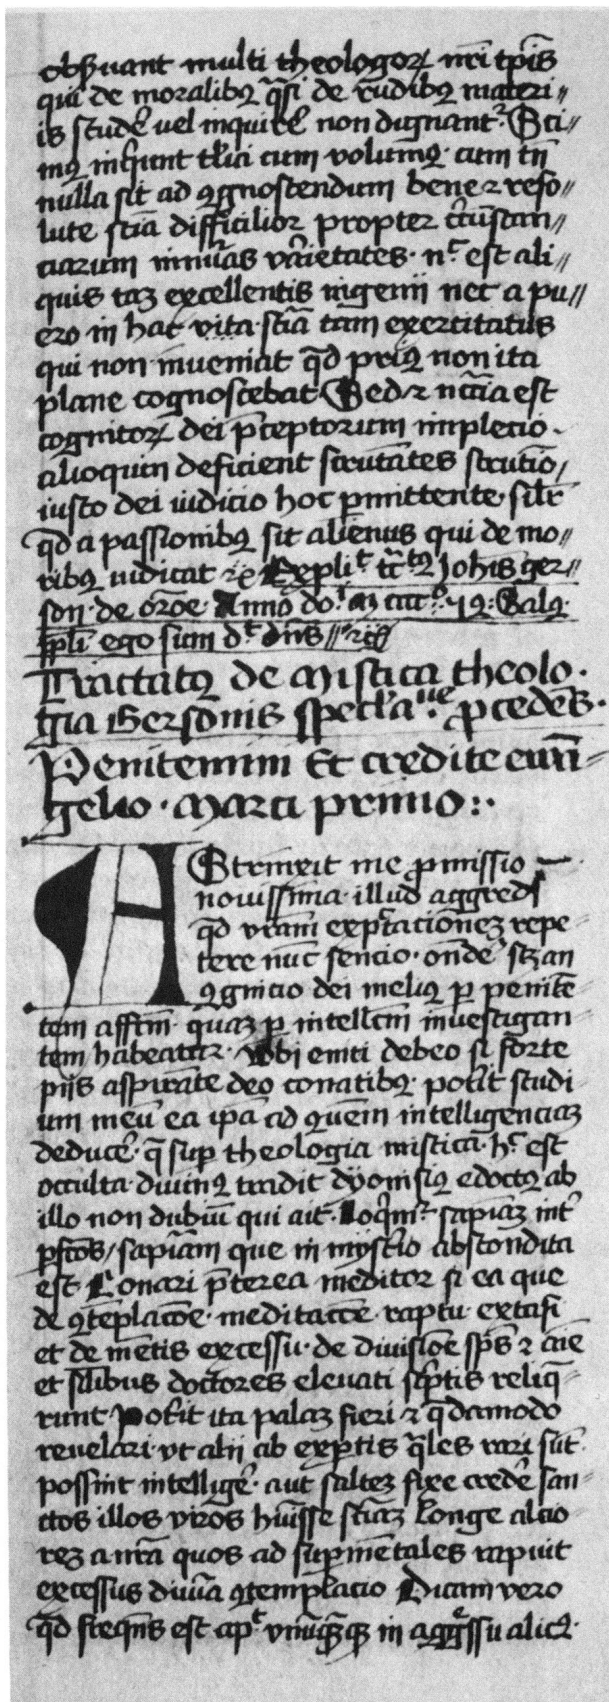 obẜuant multi theologoꝝ nr̄i tp̄is
qui de moralibꝫ q̄si de rudibꝫ materi〃
is studēr uel inquirē non dignant᷑. Sci〃
mꝰ inq̇unt tales cum volumꝰ. cum tn̄
nulla sit ad ꝯgnoscendum bene ⁊ reso〃
lute scīa difficilior propter cir̄cūstan〃
ciarum īnnūas varietates. nᶜ est ali〃
quis taꝫ excellentis ingenii nec a pu〃
ero in hac vita scīa tam exercitatus
qui non inueniat qd̄ priꝰ non ita
plane cognoscebat Sed ⁊ nc̄c̄ia est
cognitoꝝ dei p̄ceptorum impletio.
alioquin deficient scrutātes scrutīo/
iusto dei iudicio hoc ꝑmittente. silr̄
qd̄ a passionibꝫ sit alienus qui de mo〃
ribꝫ iudicat ⁊c̄ Expliᵗ tc̄tꝰ Johīs ger〃
son. de or̄oe. Anno do.
ppl̄i ego sum d.ᵗ dn̄s
Tractatꝰ de Mistica theolo.
gia Gersonis specl̄aᵘᵉ. ꝓcedēs.
Penitemini Et credite eua͞n〃
gelio. Marci primo:.
AStrinxit me ꝓmissio
nouissima. illud aggredi
qd̄ vr̄am exp̄ctacioneꝫ repe〃
tere nūc sencio. ondē. sꝫ an
ꝯgnicio dei meliꝰ ꝑ penitē〃
tem affcm̄. quaꝫ ꝑ intellcm̄ inuestigan〃
tem habeatur. Vbi eniti debeo si forte
piis aspirāte deo conatibꝫ. pot̄it studi〃
um meū ea ip̄a ad quem intelligenciaꝫ
deducē. q̄ suꝑ theologia mistica. h.ᶜ est
occulta. diuinꝰ tradit dyonisiꝰ edoctꝰ ab
illo non dubiū qui ait. loq̇m᷑. sapiāꝫ int̄
ꝑfcōs/ sapiām que in mystīo abscondita
est Conari p̄terea meditor si ea que
de ꝯtēplacōe. meditacōe. raptu. extasi
et de mētis excessu. de diuisiōe sp̄s ⁊ aīe
et sīlibus doctores eleuati scp̄tis reliq̄〃
runt. Pot̄it ita palaꝫ fieri ⁊ q̄damodo
reuelari. vt alii ab exꝑtis q̄les rari sūt.
possint intelligē. aut salteꝫ fixe credē san〃
ctos illos viros hūisse scīaꝫ longe altio〃
reꝫ a nr̄a quos ad suꝑmētales rapuit
excessus diuīa ꝯtemplacio Dicam vero
qd̄ freqn̄s est apᵗ vnūq̄mqꝫ in aggr̄ssu alicꝰ.